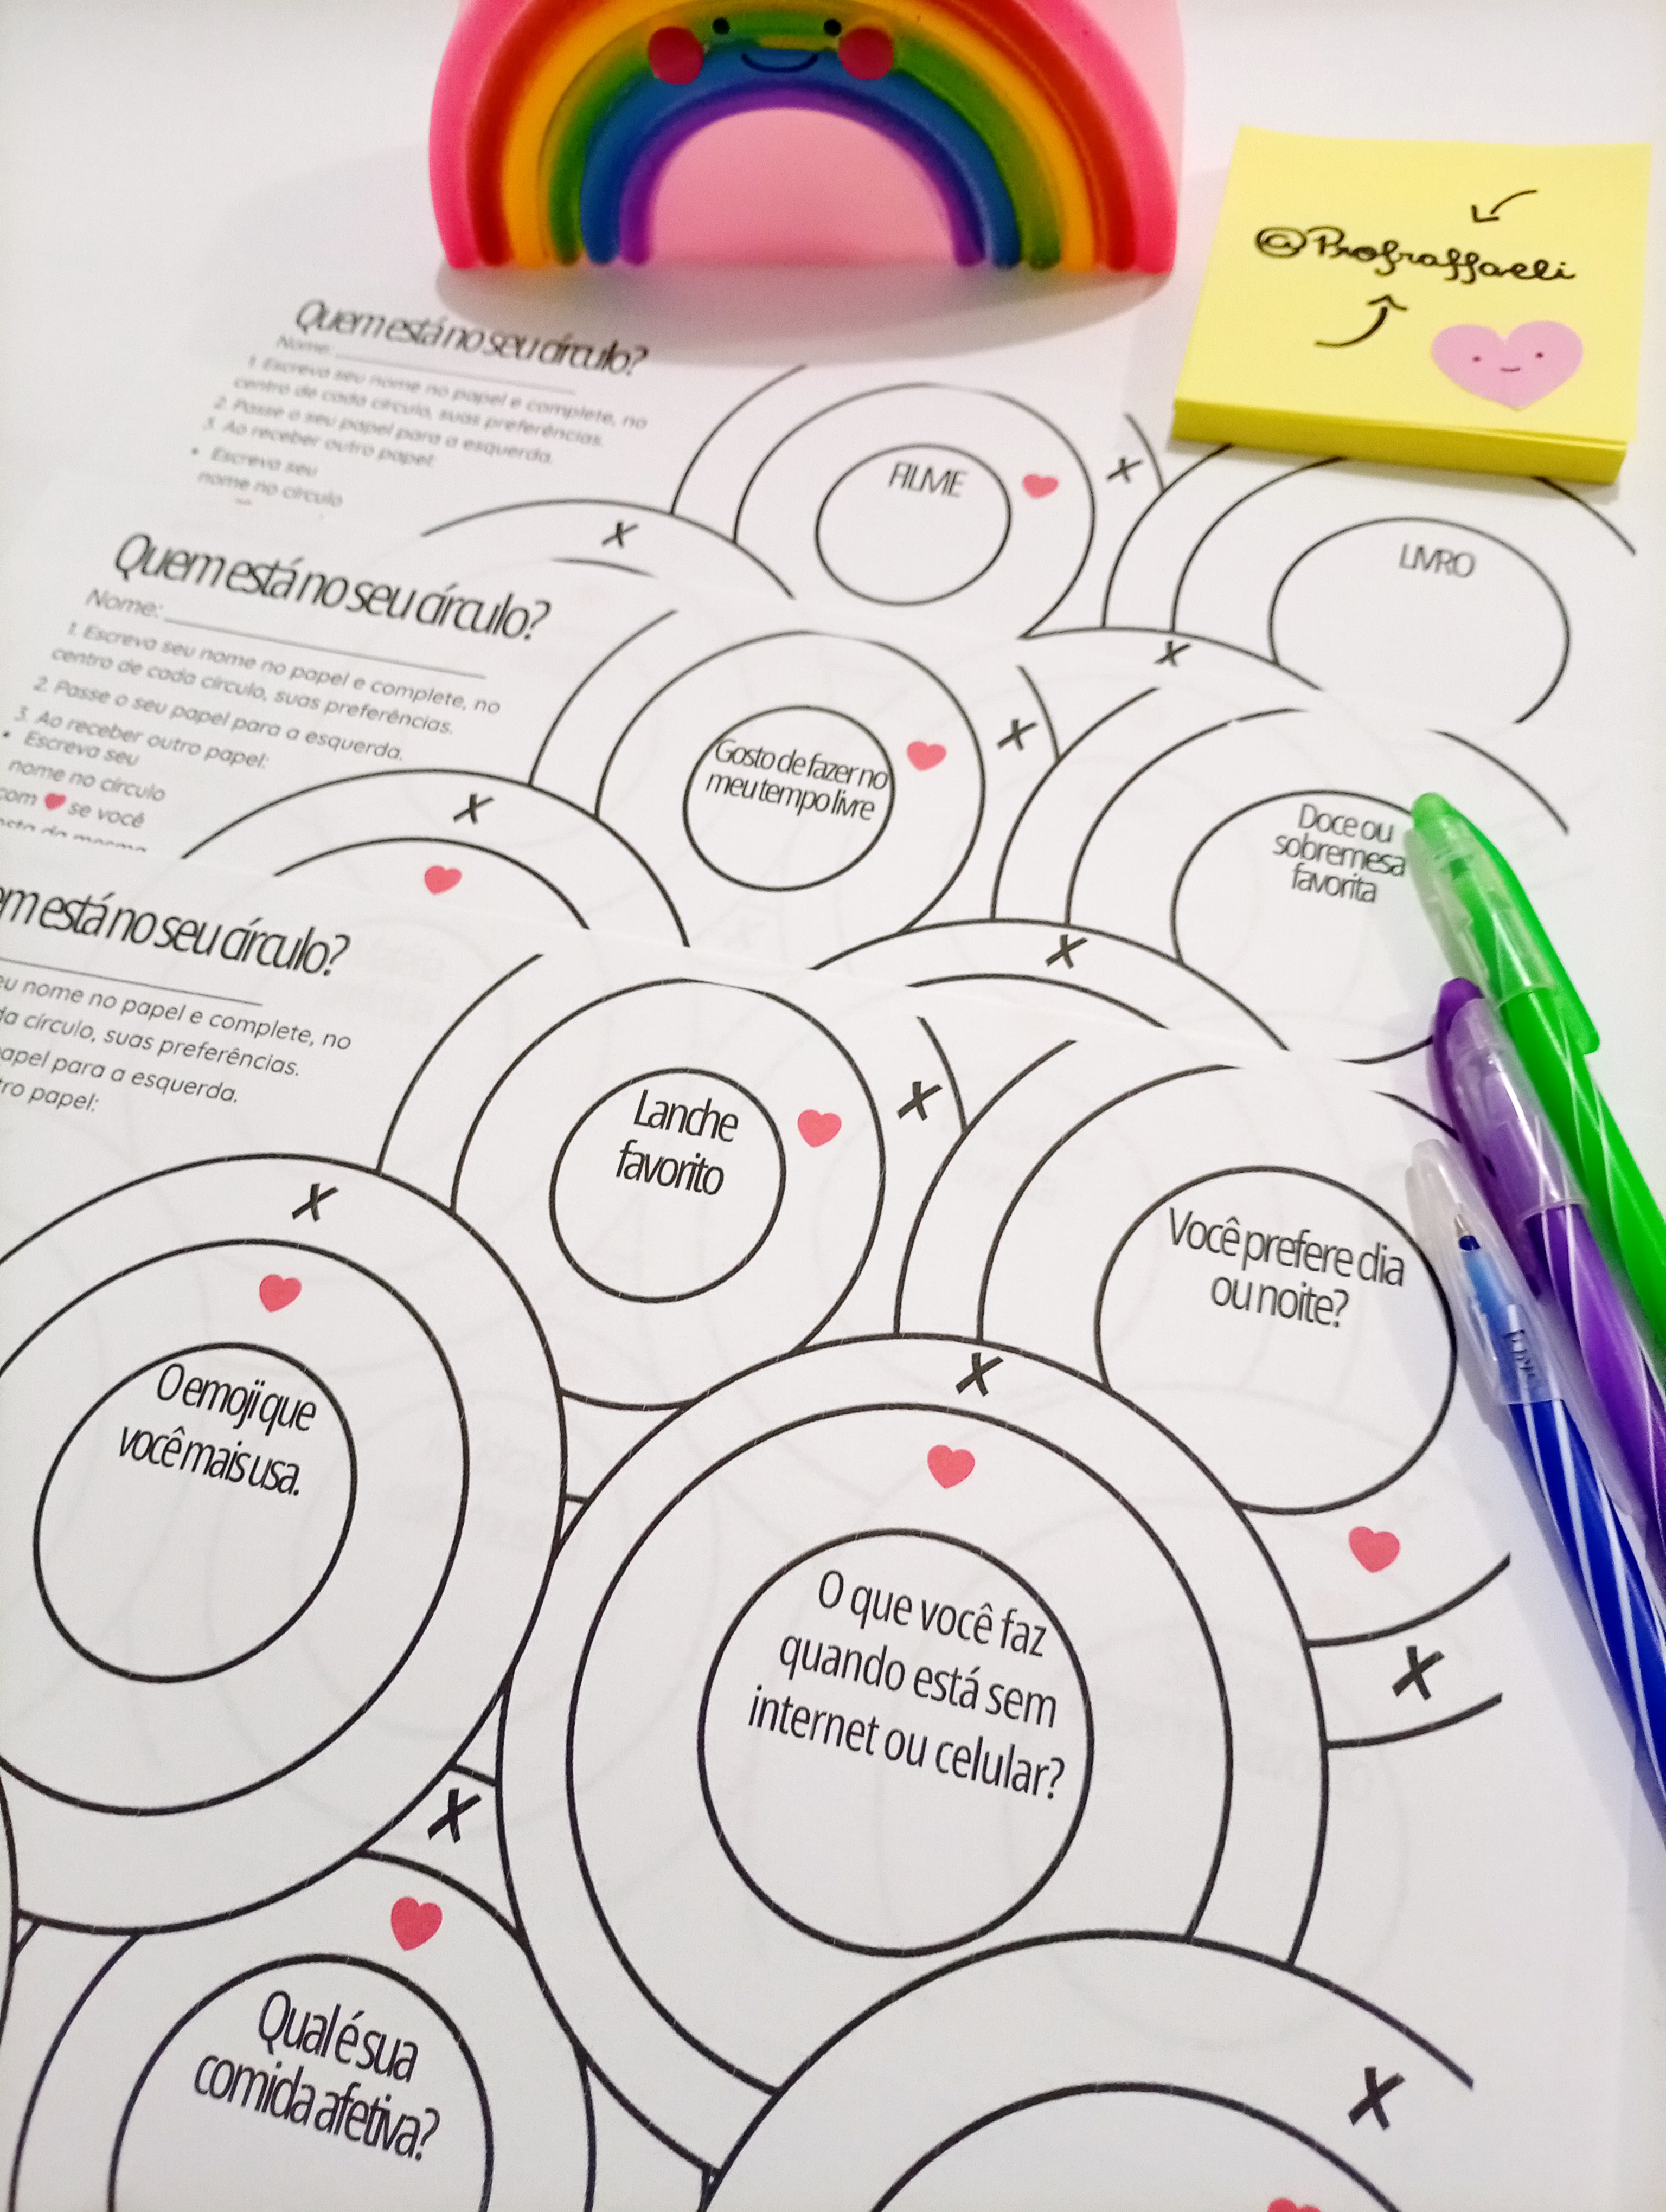 @Profraffaeli
Quem está no seu círculo?
Nome:
1. Escreva seu nome no papel e complete, no
centro de cada círculo, suas preferências.
2. Passe o seu papel para a esquerda.
3. Ao receber outro papel:
• Escreva seu
nome no círculo
FILME
X
LIVRO
X
X
Quem está no seu círculo?
Nome:
1. Escreva seu nome no papel e complete, no
centro de cada círculo, suas preferências.
2. Passe o seu papel para a esquerda.
3. Ao receber outro papel:
• Escreva seu
nome no círculo
com ❤ se você
Gosto de fazer no
meu tempo livre
X
Doce ou
sobremesa
favorita
X
X
em está no seu círculo?
eu nome no papel e complete, no
da círculo, suas preferências.
apel para a esquerda.
tro papel:
Lanche
favorito
X
Você prefere dia
ou noite?
X
X
O emoji que
você mais usa.
X
O que você faz
quando está sem
internet ou celular?
X
X
Qual é sua
comida afetiva?
X